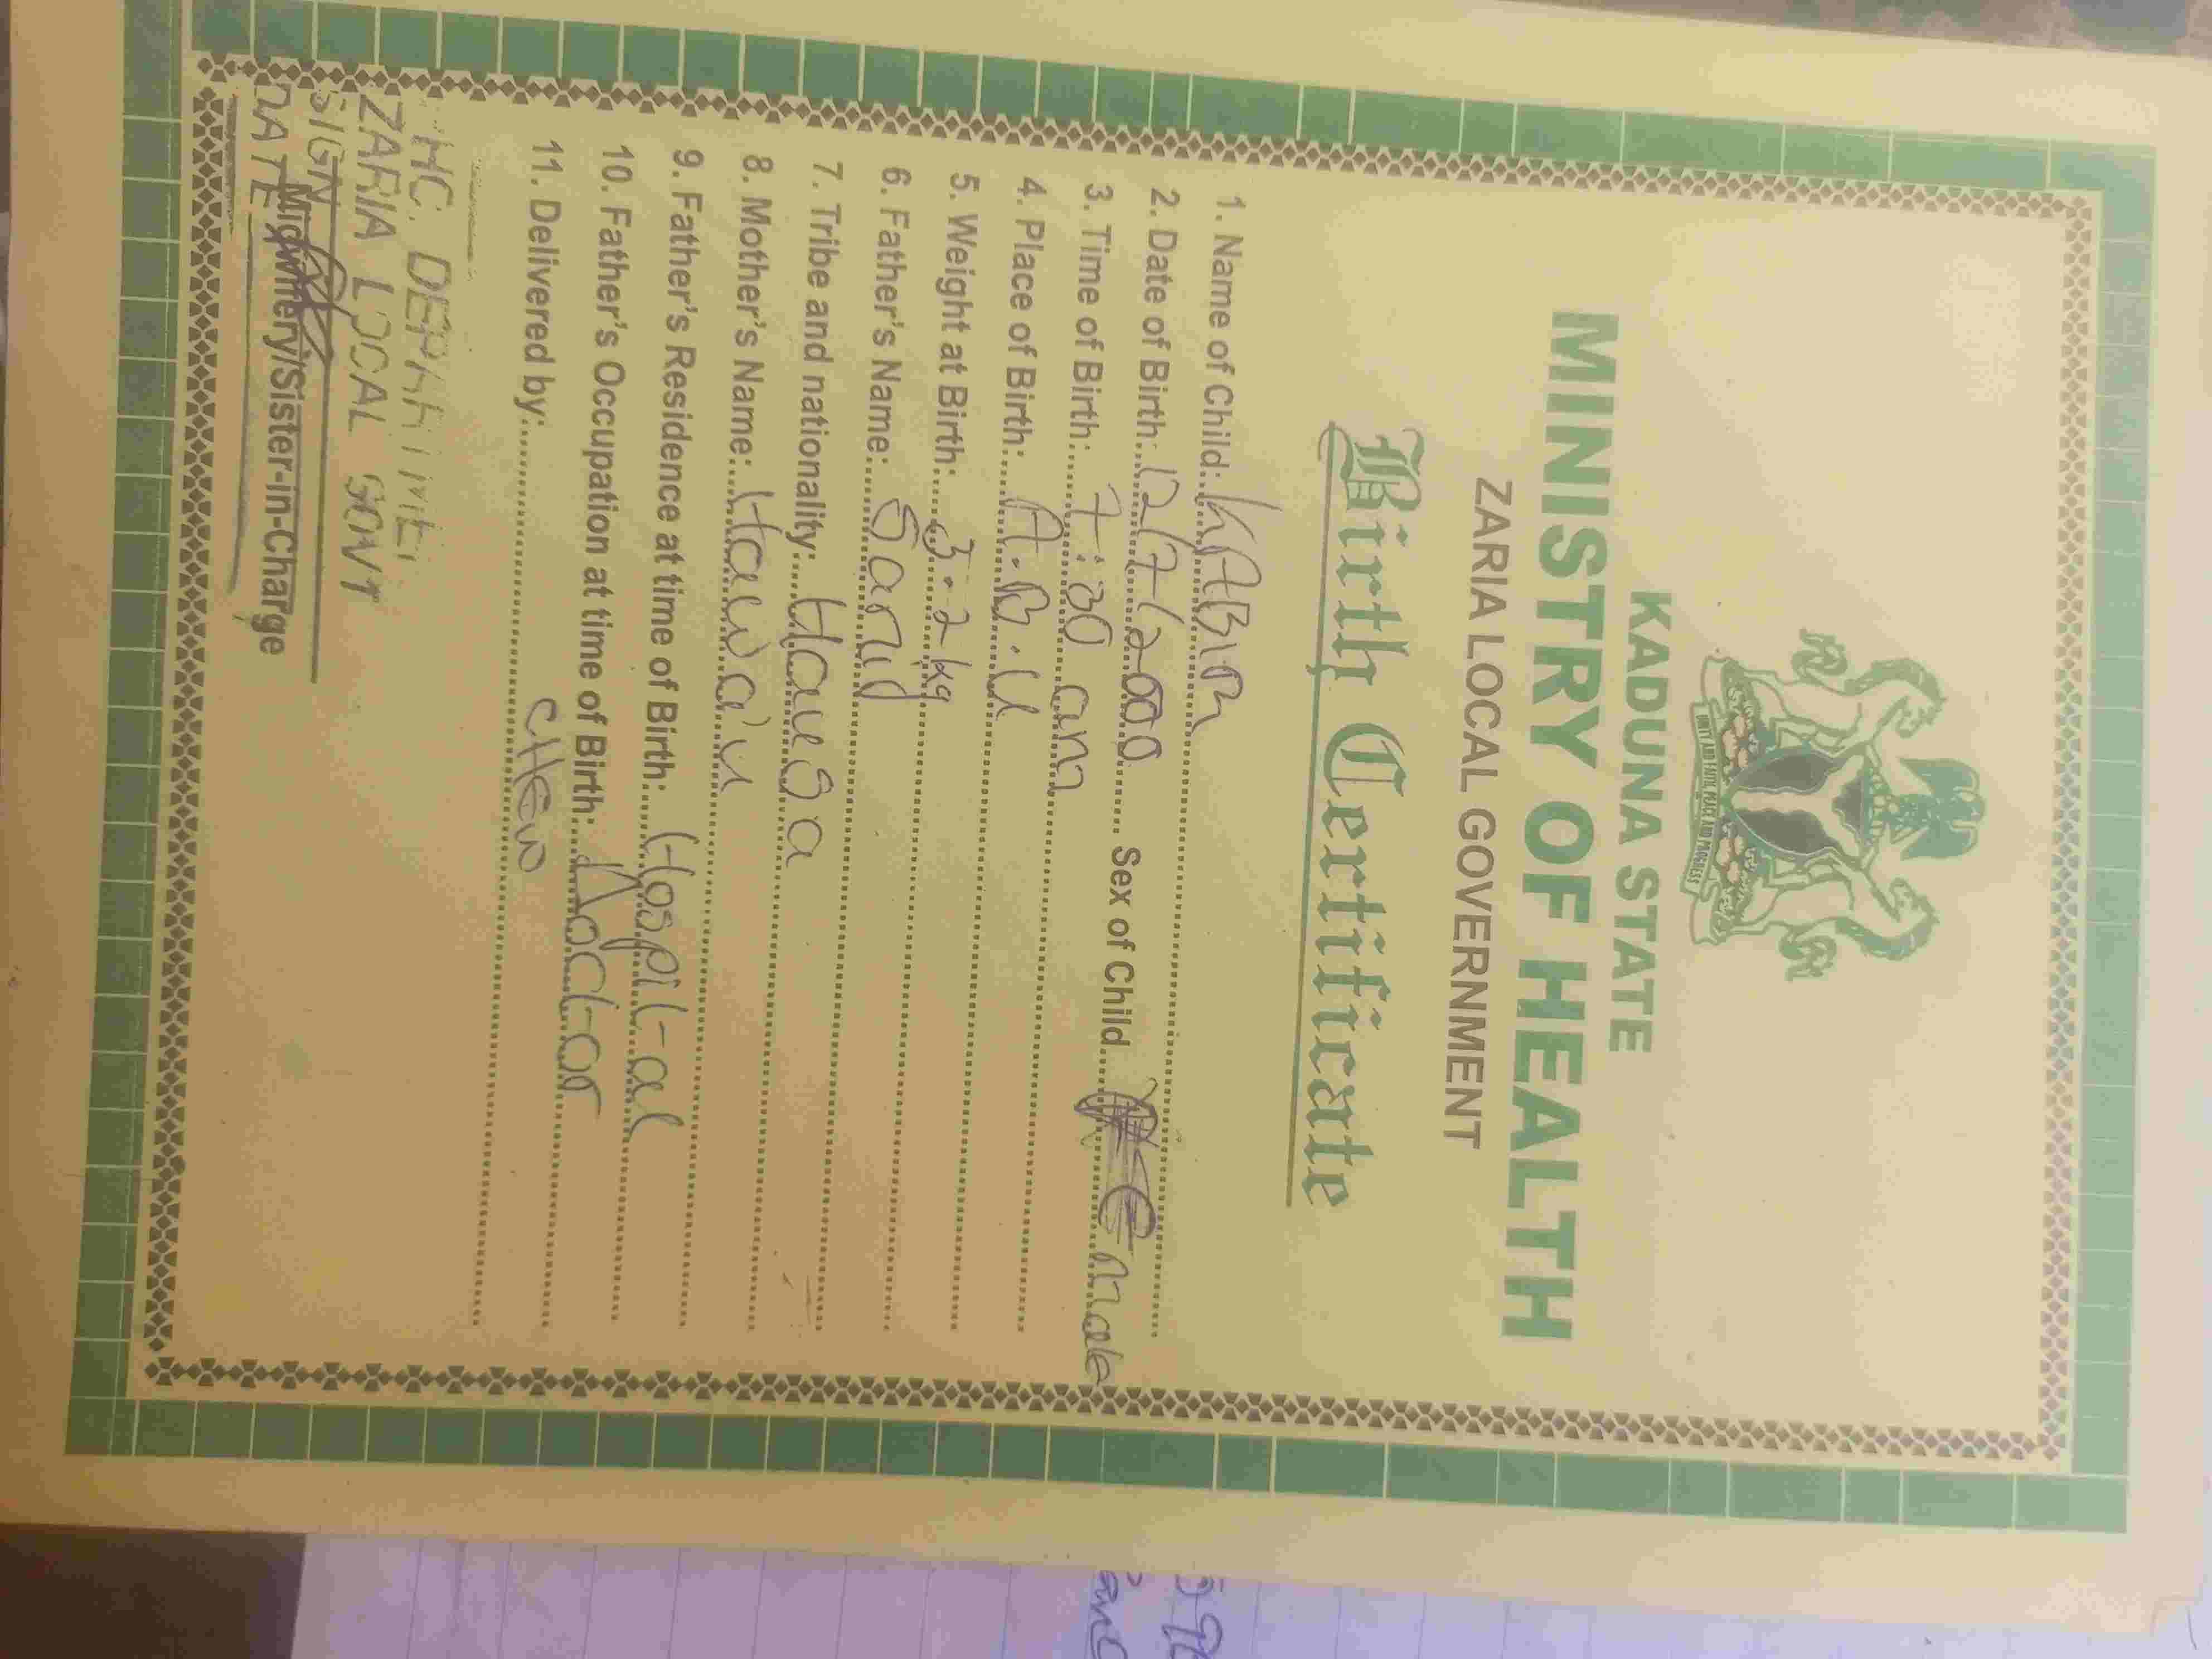 UNITY AND FAITH, PEACE AND PROGRESS
KADUNA STATE
MINISTRY OF HEALTH
ZARIA LOCAL GOVERNMENT
Birth Certificate
1. Name of Child: KABIR
2. Date of Birth: 12/7/2000 Sex of Child male
3. Time of Birth: 7:30 am
4. Place of Birth: A.B.U
5. Weight at Birth: 3.2kg
6. Father's Name: Sanid
7. Tribe and nationality: Hausa
8. Mother's Name: Hawa'u
9. Father's Residence at time of Birth: Hospital
10. Father's Occupation at time of Birth: Doctor
11. Delivered by: CHEW
ZARIA LOCAL GOVT
SIGN
DATE
Midwifery/Sister-in-Charge